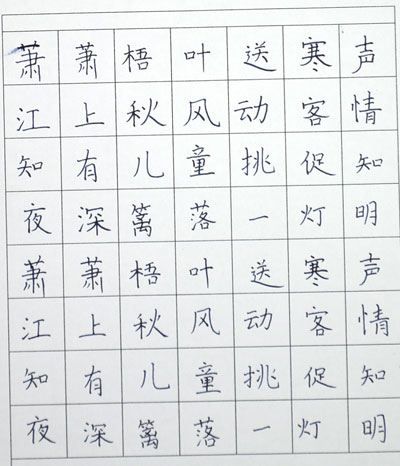 萧萧梧叶送寒声
江上秋风动客情
知有儿童挑促知
夜深篱落一灯明
萧萧梧叶送寒声
江上秋风动客情
知有儿童挑促知
夜深篱落一灯明